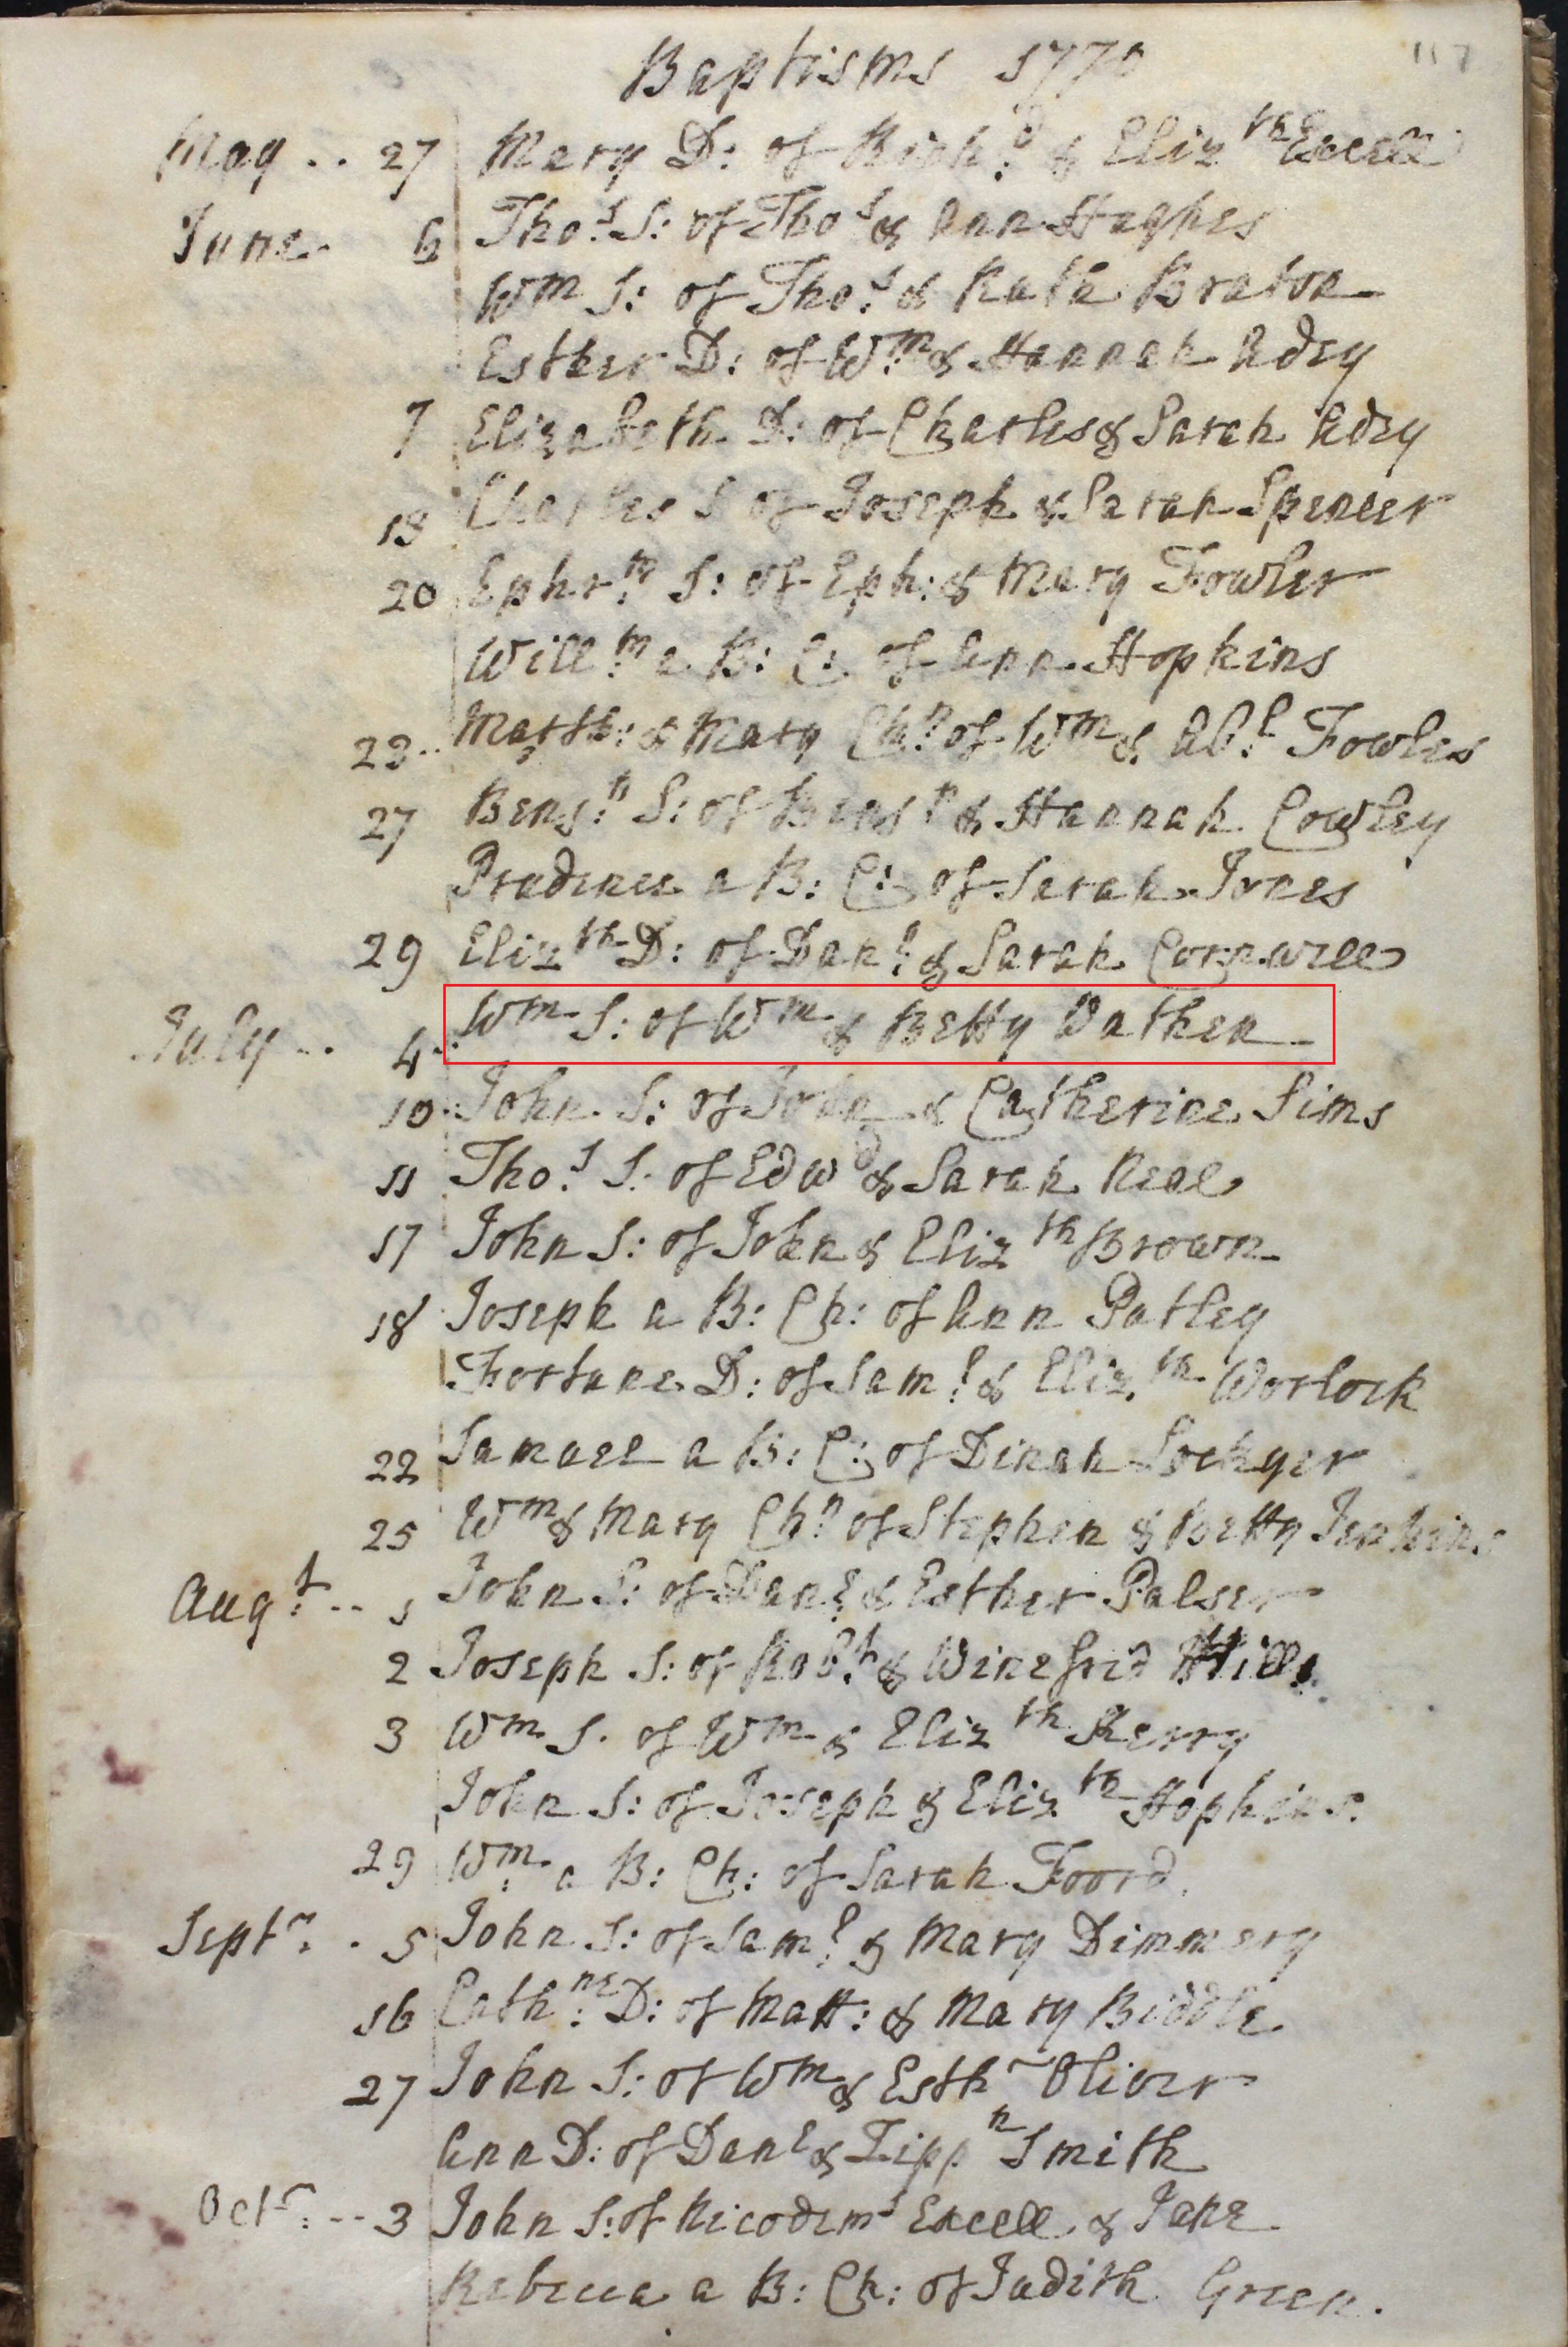 117
Baptisms 1770
May .. 27 Mary D: of Rich:d & Eliz th Excell
June. 6 Tho:s S: of Tho s & Ann Hughes
Wm S: of Tho:s & Ruth Braton
Esther D: of W:m & Hannah Adey
7 Elizabeth D: of Charles & Sarah Adey
19 Charles S of Joseph & Sarah Spencer
20 Ephr:m S: of Eph: & Mary Fowler
Will:m a B: C: of Ann Hopkins
23.. Marth: & Mary Ch:n of Wm & Ab:l Fowles
27 Benj:n S: of Benj n & Hannah Cowley
Prudence a B: C: of Sarah Jones
29 Eliz th D: of Dan:l & Sarah Cornwell
July .. 4.. Wm S: of Wm & Betty Vathen
10. John S: of John & Catherine Sims
11 Tho:s S: of Edw d & Sarah Neal
17 John S: of John & Eliz th Brown
18 Joseph a B: Ch: of Ann Patley
Fortune D: of Sam:l & Eliz. th Worlock
22 Samuel a B: C: of Dinah
25 Wm & Mary Ch:n of Stephen & Betty Jenkins
Aug:t -- 1 John S: of Dan:l & Esther Palser
2 Joseph S: of Rob:t & Winefrid Hill
3 Wm S. of Wm & Eliz th Kerry
John S: of Joseph & Eliz th Hopkins.
29 Wm: a B: Ch: of Sarah Foord.
Sept r: . 5 John S: of Sam:l & Mary Dimmery
16 Cath:ne D: of Matt: & Mary Biddle
27 John S: of Wm & Esth r Oliver
Ann D: of Dan l & Zipp n Smith
Oct r: -- 3 John S: of Nicodem s Excell & Jane
Rebecca a B: Ch: of Judith Green.